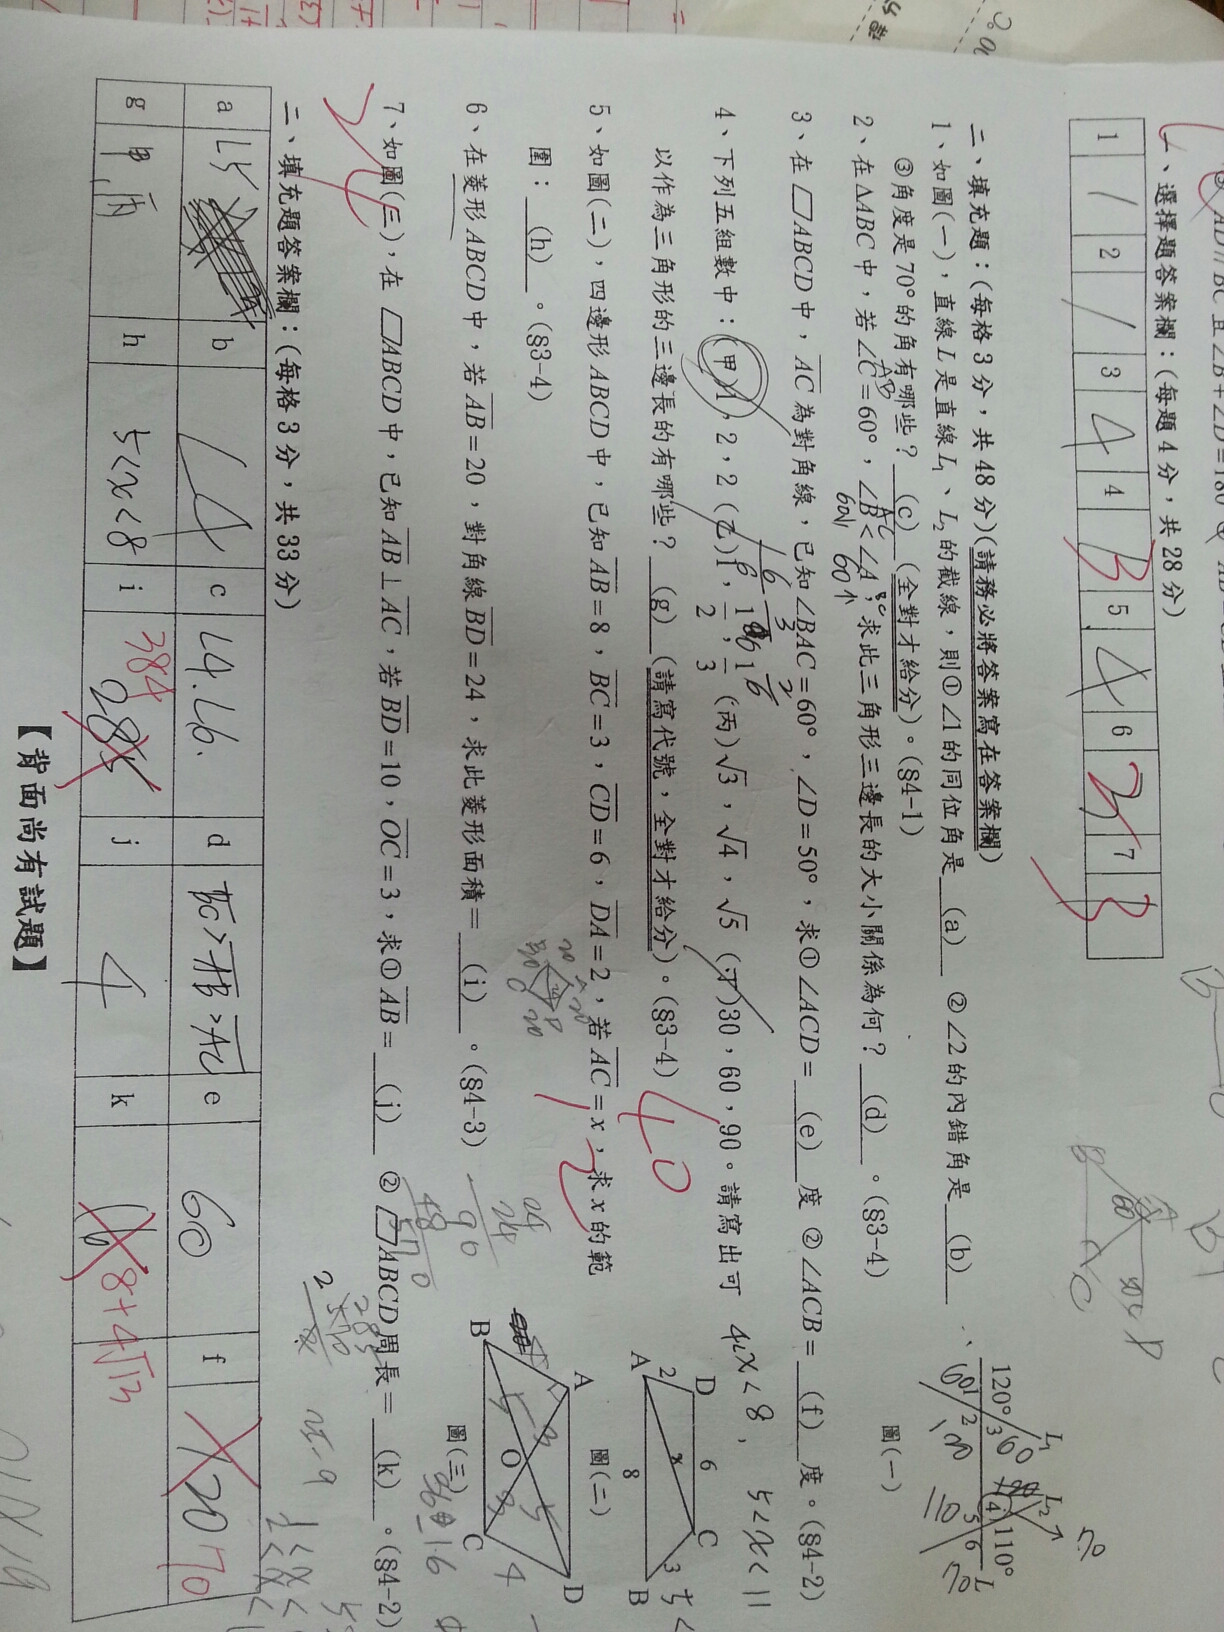 一、選擇題答案欄：(每題4分，共28分)
1 / 2 / 3 4 4 B 5 4 6 3 7 B
二、填充題：(每格3分，共48分)(請務必將答案寫在答案欄)
1、如圖(一)，直線L是直線L₁、L₂的截線，則①∠1的同位角是 (a) ②∠2的內錯角是 (b) 、
③角度是70°的角有哪些？ (c) (全對才給分)。(84-1)
2、在△ABC中，若∠C=60°，∠B<∠A，求此三角形三邊長的大小關係為何？ (d) 。(83-4)
3、在▱ABCD中，AC為對角線，已知∠BAC=60°，∠D=50°，求①∠ACD= (e) 度 ②∠ACB= (f) 度。(84-2)
4、下列五組數中：(甲)1，2，2 (乙)1，1/2，1/3 (丙)√3，√4，√5 (丁)30，60，90。請寫出可
以作為三角形的三邊長的有哪些？ (g) (請寫代號，全對才給分)。(83-4)
40
5、如圖(二)，四邊形ABCD中，已知AB=8，BC=3，CD=6，DA=2，若AC=x，求x的範
圍： (h) 。(83-4)
6、在菱形ABCD中，若AB=20，對角線BD=24，求此菱形面積= (i) 。(84-3)
7、如圖(三)，在▱ABCD中，已知AB⊥AC，若BD=10，OC=3，求①AB= (j) ②▱ABCD周長= (k) 。(84-2)
120° 3 60 L₁ L₂
1 2 4 110°
5 6 L
70
圖(一)
4<x<8， 5<x<11
D 6 C
A 2 x 3
8 B
圖(二)
A D
B O C
圖(三)
二、填充題答案欄：(每格3分，共33分)
a ∠5 b ∠4 c ∠4.∠6. d BC>AB>AC e 60 f 20 70
g 甲、丙 h 5<x<8 i 384 j 4 k 16 8+4√13
【背面尚有試題】